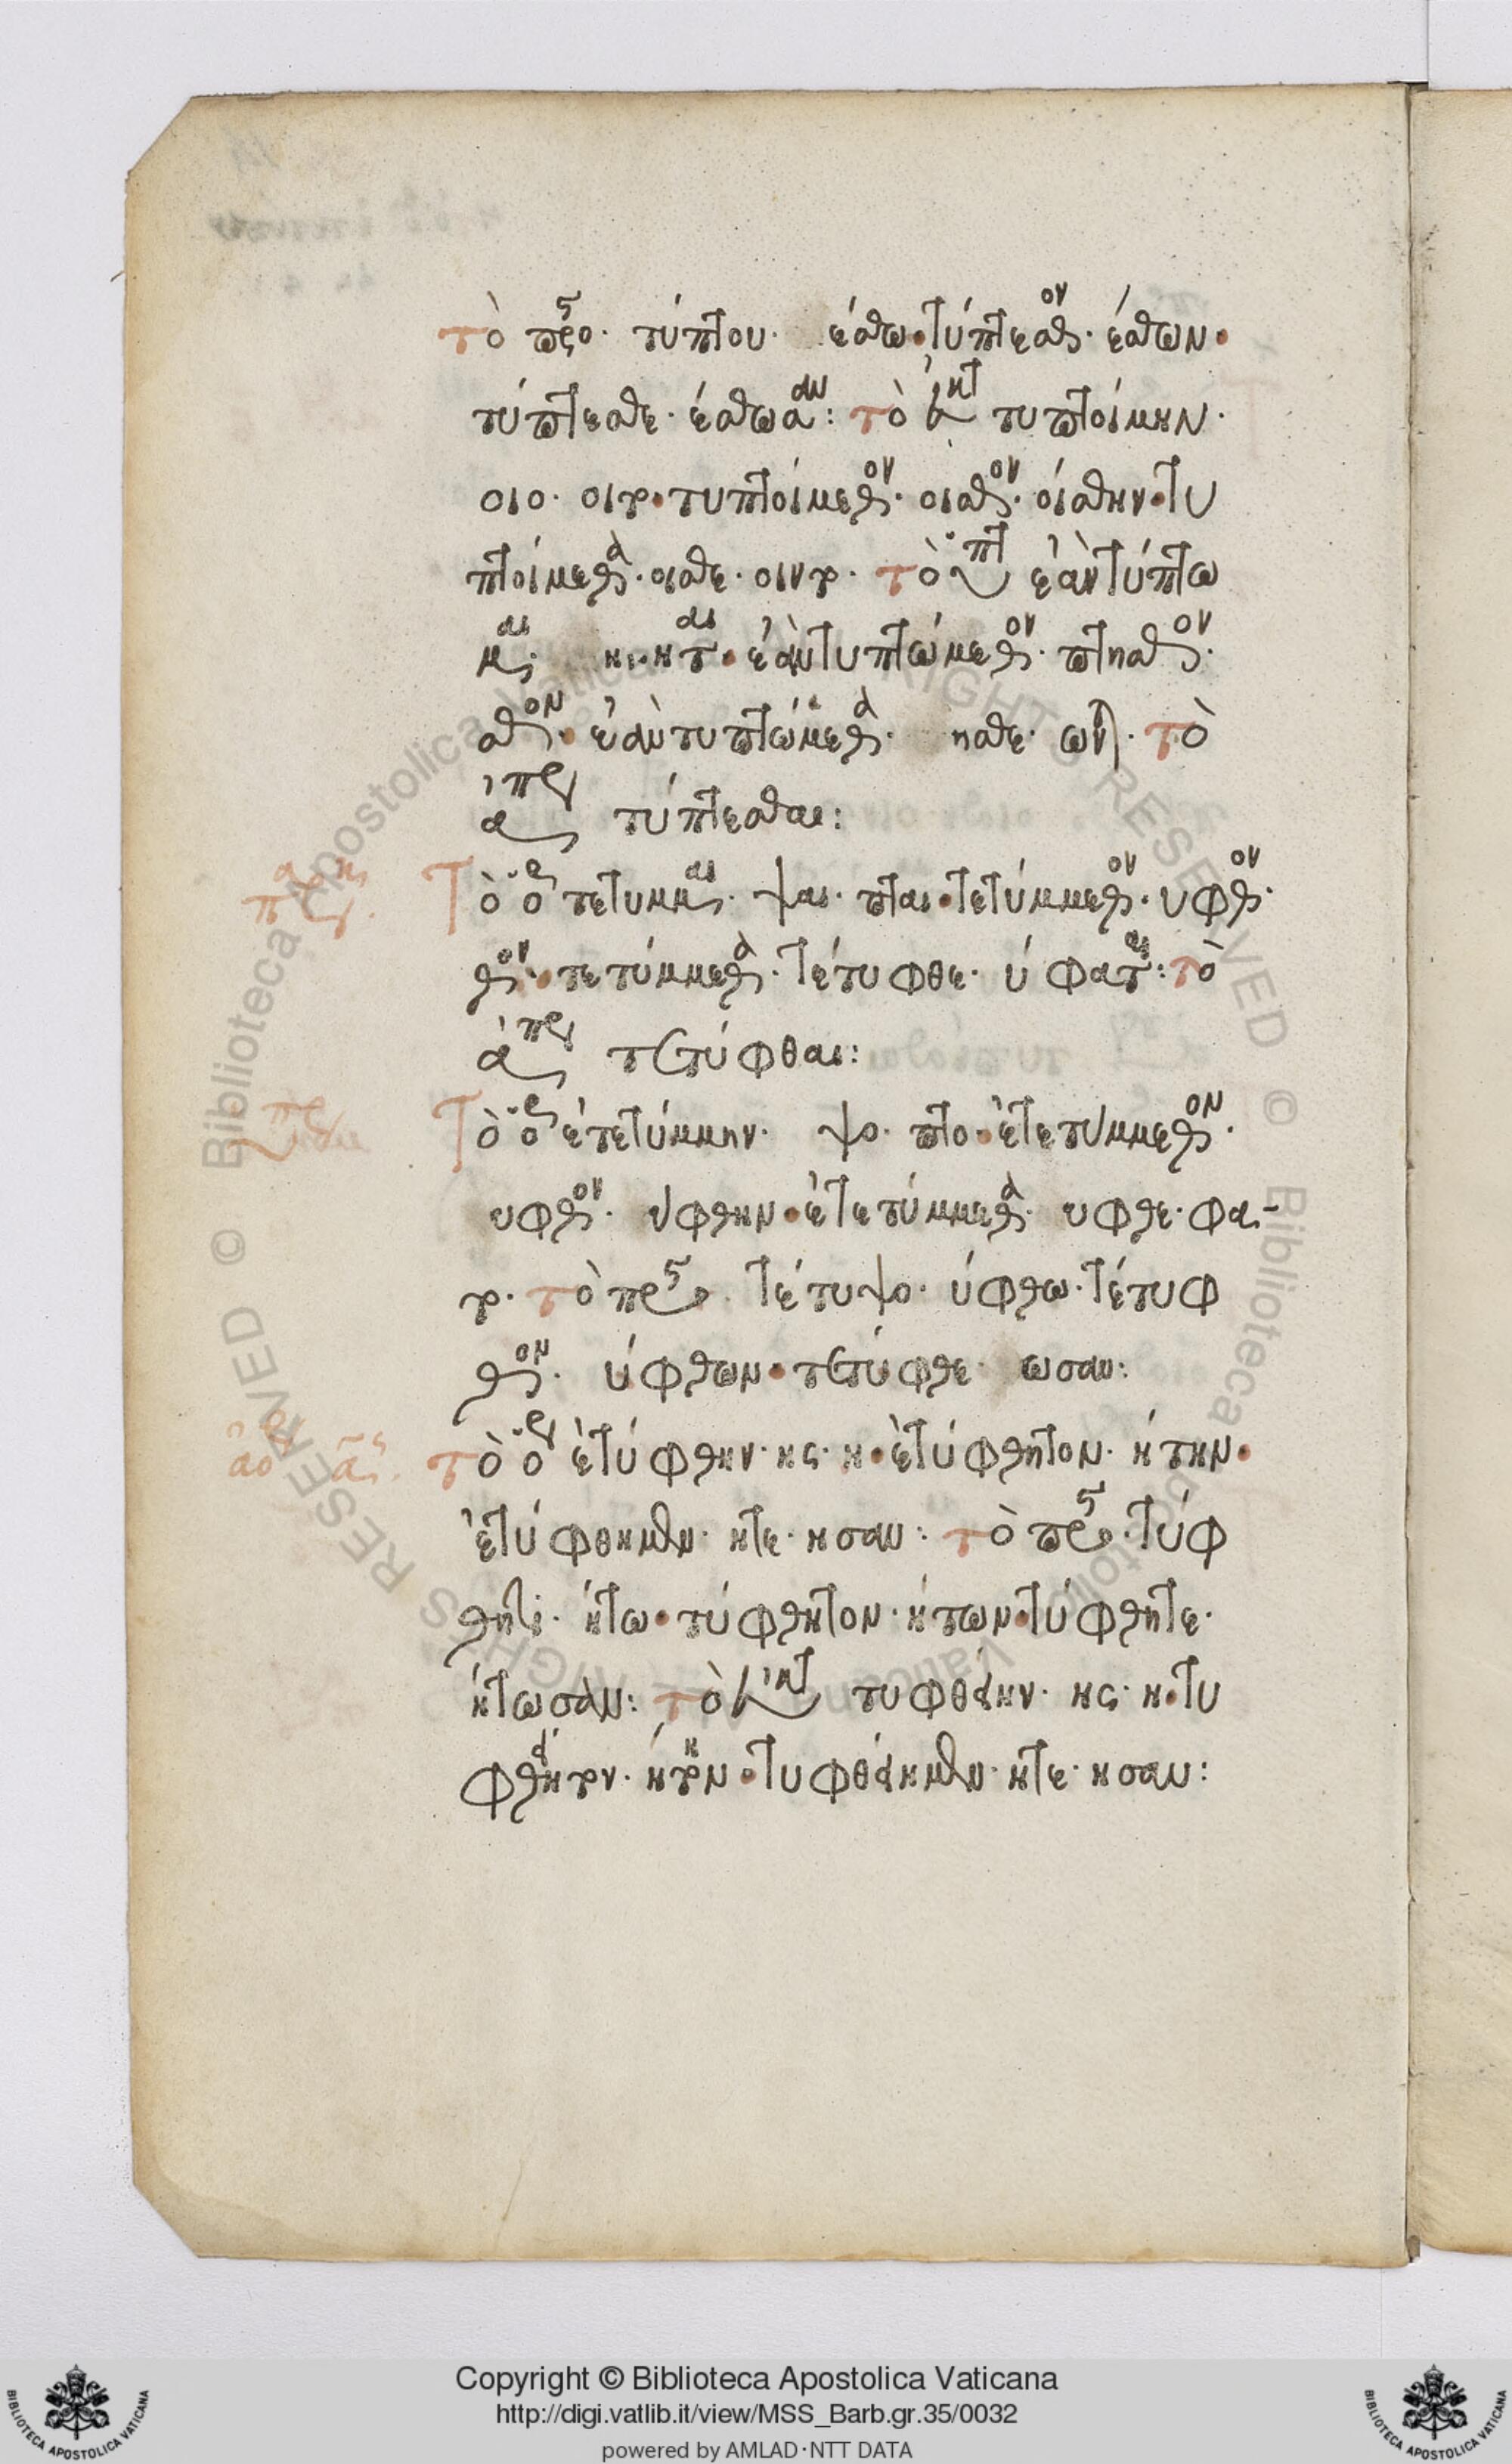 τὸ προς· τύπτου· έσθω· τύπτεσθον· έσθων·
τύπτεσθε· έσθωσαν: τὸ εὐκτ τυπτοίμην·
οιο· οιτο· τυπτοίμεθον· οισθον· οίσθην· τυ
πτοίμεθα· οισθε· οιντο· τὸ ὑποτ ἐὰν τύπτω
μαι· ηι· ηται· ἐὰν τυπτώμεθον· πτησθον·
σθον· ἐὰν τυπτώμεθα· ησθε· ωνται· τὸ
ἀπαρ τύπτεσθαι:
παρακ
Τὸ ὁρ τετυμμαι· ψαι· πται· τετύμμεθον· υφθον·
θον· τετύμμεθα· τέτυφθε· ύφαται: τὸ
ἀπαρ τετύφθαι:
Τὸ ὁρ ἐτετύμμην· ψο· πτο· ἐτετυμμεθον·
υφθον· ύφθην· ἐτετύμμεθα· υφθε· φα-
το· τὸ προς· τέτυψο· ύφθω· τέτυφ
θον· ύφθων· τετύφθε· ωσαν:
ἀορ α
τὸ ὁρ ἐτύφθην· ης· η· ἐτύφθητον· ήτην·
ἐτύφθημεν· ητε· ησαν: τὸ προς· τύφ
θητι· ήτω· τύφθητον· ήτων· τύφθητε·
ήτωσαν: τὸ εὐκτ τυφθείην· ης· η· τυ
φθείητον· ήτην· τυφθείημεν· ητε· ησαν:
Copyright © Biblioteca Apostolica Vaticana
http://digi.vatlib.it/view/MSS_Barb.gr.35/0032
powered by AMLAD·NTT DATA